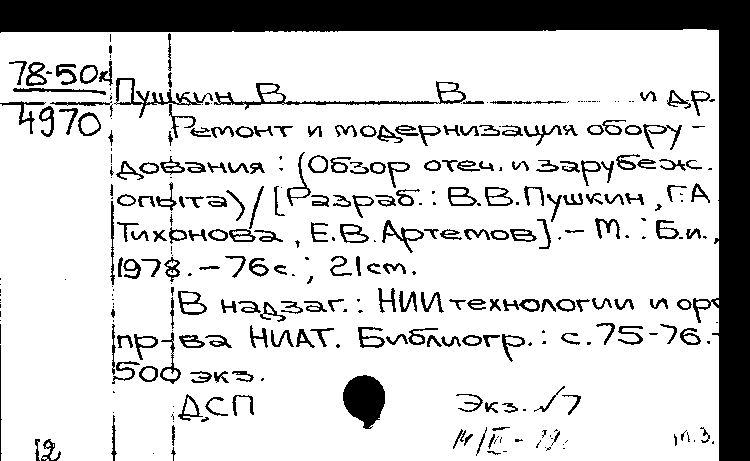 78-50к
4970
Пушкин, В. В. и др.
Ремонт и модернизация обору-
дования : (Обзор отеч. и зарубеж.
опыта) / [Разраб.: В.В.Пушкин, Г.А
Тихонова, Е.В.Артемов]. - М. : Б.и.,
1978. - 76с. ; 21см.
В надзаг.: НИИ технологии и орг
пр-ва НИАТ. Библиогр.: с.75-76.-
500 экз.
ДСП Экз. √7
14/III - 79г. т.3.
12